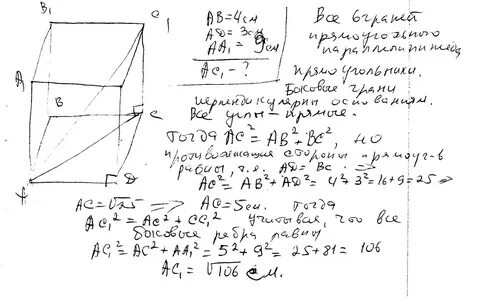 B₁
C₁
A₁
B
C
A
D
AB = 4 см
AD = 3 см
AA₁ = 9 см
AC₁ - ?
Все 6 граней
прямоугольного
параллелипипеда
прямоугольники.
Боковые грани
перпендикулярны основаниям.
Все углы - прямые.
Тогда AC² = AB² + BC², но
противолежащие стороны прямоуг-в
равны, т.е. AD = BC. =>
AC² = AB² + AD² = 4² + 3² = 16 + 9 = 25 =>
AC = √25 => AC = 5 см. Тогда
AC₁² = AC² + CC₁² Учитывая, что все
боковые ребра равны
AC₁² = AC² + AA₁² = 5² + 9² = 25 + 81 = 106
AC₁ = √106 см.